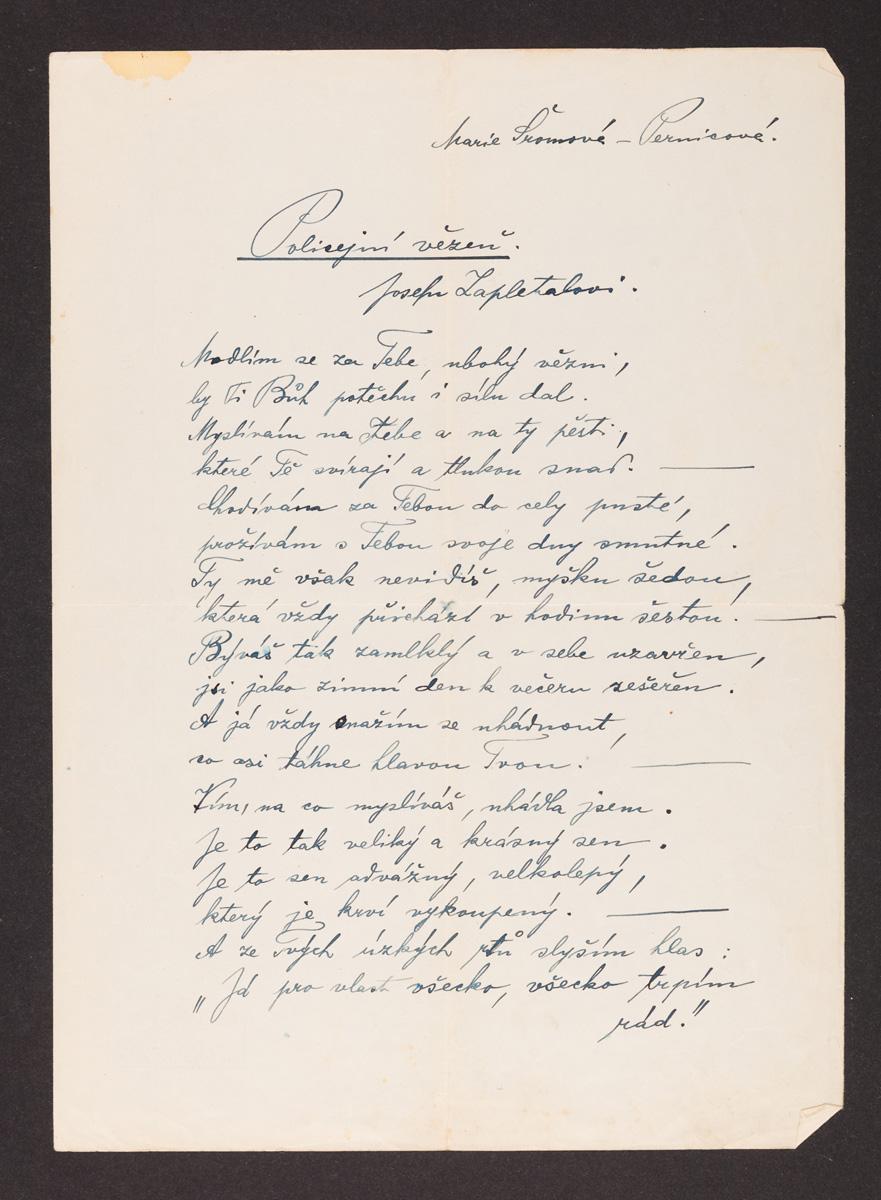 Marie Šromová – Pernicová.
Policejní vězeň.
Josefu Zapletalovi.
Modlím se za Tebe, ubohý vězni,
by Ti Bůh potěchu i sílu dal.
Myslívám na Tebe a na ty pěsti,
které Tě svírají a tlukou snad. —
Chodívám za Tebou do cely pusté,
prožívám s Tebou svoje dny smutné.
Ty mě však nevidíš, myšku šedou,
která vždy přichází v hodinu šestou. —
Býváš tak zamlklý a v sebe uzavřen,
jsi jako zimní den k večeru sešeřen.
A já vždy snažím se uhádnout,
co asi táhne hlavou Tvou. —
Vím, na co myslíváš, uhádla jsem.
Je to tak veliký a krásný sen.
Je to sen odvážný, velkolepý,
který je krví vykoupený. —
A ze Tvých úzkých rtů slyším hlas:
„Já pro vlast všecko, všecko trpím
rád."